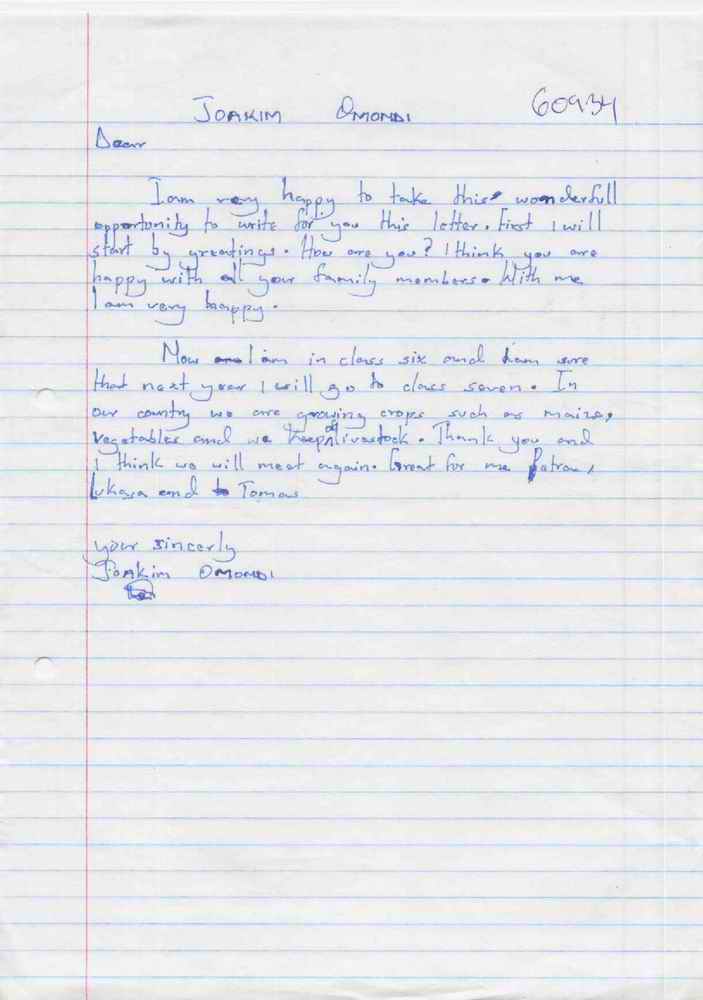 JOAKIM OMONDI 60934
Dear
I am very happy to take this wonderfull
opportunity to write for you this letter. First I will
start by greetings. How are you? I think you are
happy with all your family members. With me
I am very happy.
Now I am in class six and I am sure
that next year I will go to class seven. In
our country we are growing crops such as maize,
vegetables and we keep of livestock. Thank you and
I think we will meet again. Great for me Patrae,
Lukasa and to Tomas
your sincerly
JOAKIM OMONDI